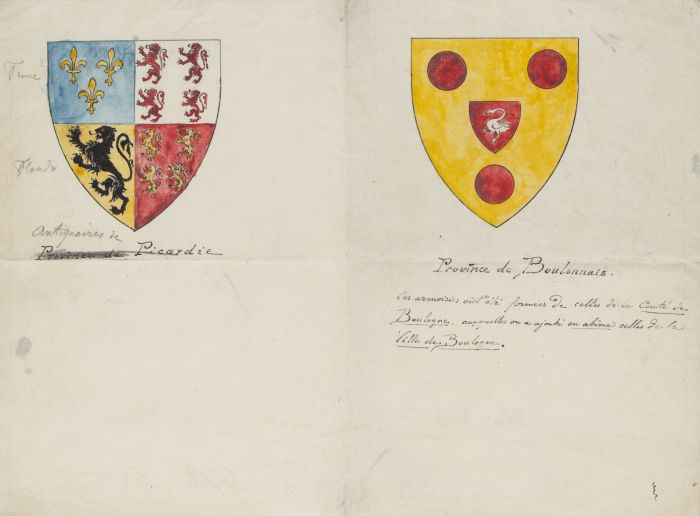 France
Flandre
Antiquaires de
Province de Picardie
Province de Boulonnais.
Ces armoiries ont été formées de celles de la Comté de
Boulogne. auxquelles on a ajouté en abime celles de la
Ville de Boulogne.